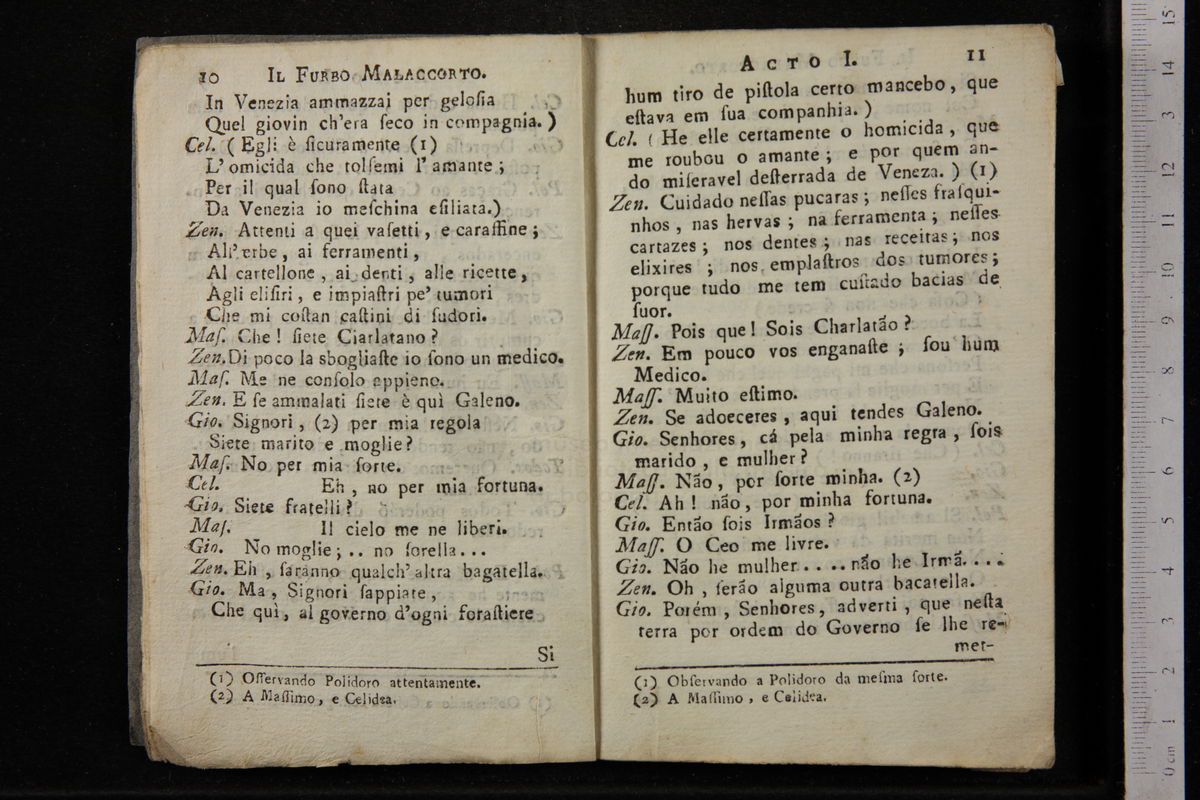 10 IL FURBO MALACCORTO.
In Venezia ammazzai per geloſia
Quel giovin ch'era ſeco in compagnia. )
Cel. ( Egli è ſicuramente (1)
L'omicida che tolſemi l'amante ;
Per il qual ſono ſtata
Da Venezia io meſchina eſiliata.)
Zen. Attenti a quei vaſetti , e caraffine ;
All'erbe , ai ferramenti ,
Al cartellone , ai denti , alle ricette ,
Agli eliſiri , e impiaſtri pe' tumori
Che mi coſtan caſtini di ſudori.
Maſ. Che ! ſiete Ciarlatano ?
Zen. Di poco la sbogliaſte io ſono un medico.
Maſ. Me ne conſolo appieno.
Zen. E ſe ammalati ſiete è quì Galeno.
Gio. Signori , (2) per mia regola
Siete marito e moglie ?
Maſ. No per mia ſorte.
Cel. Eh , no per mia fortuna.
Gio. Siete fratelli ?
Maſ. Il cielo me ne liberi.
Gio. No moglie ; .. no ſorella...
Zen. Eh , ſaranno qualch'altra bagatella.
Gio. Ma , Signori ſappiate ,
Che quì , al governo d'ogni foraſtiere
Si
(1) Oſſervando Polidoro attentamente.
(2) A Maſſimo , e Celidea.
ACTO I. 11
hum tiro de piſtola certo mancebo , que
eſtava em ſua companhia. )
Cel. ( He elle certamente o homicida , que
me roubou o amante ; e por quem an-
do miſeravel deſterrada de Veneza. ) (1)
Zen. Cuidado neſſas pucaras ; neſſes fraſqui-
nhos , nas hervas ; na ferramenta ; neſſes
cartazes ; nos dentes ; nas receitas ; nos
elixires ; nos emplaſtros dos tumores ;
porque tudo me tem cuſtado bacias de
ſuor.
Maſſ. Pois que ! Sois Charlatão ?
Zen. Em pouco vos enganaſte ; ſou hum
Medico.
Maſſ. Muito eſtimo.
Zen. Se adoeceres , aqui tendes Galeno.
Gio. Senhores , cá pela minha regra , ſois
marido , e mulher ?
Maſſ. Não , por ſorte minha. (2)
Cel. Ah ! não , por minha fortuna.
Gio. Então ſois Irmãos ?
Maſſ. O Ceo me livre.
Gio. Não he mulher . . . . não he Irmã. . . .
Zen. Oh , ſerão alguma outra bacatella.
Gio. Porém , Senhores , adverti , que neſta
terra por ordem do Governo ſe lhe re-
met-
(1) Obſervando a Polidoro da meſma ſorte.
(2) A Maſſimo , e Celidea.
15
14
13
12
11
10
9
8
7
6
5
4
3
2
1
0 cm